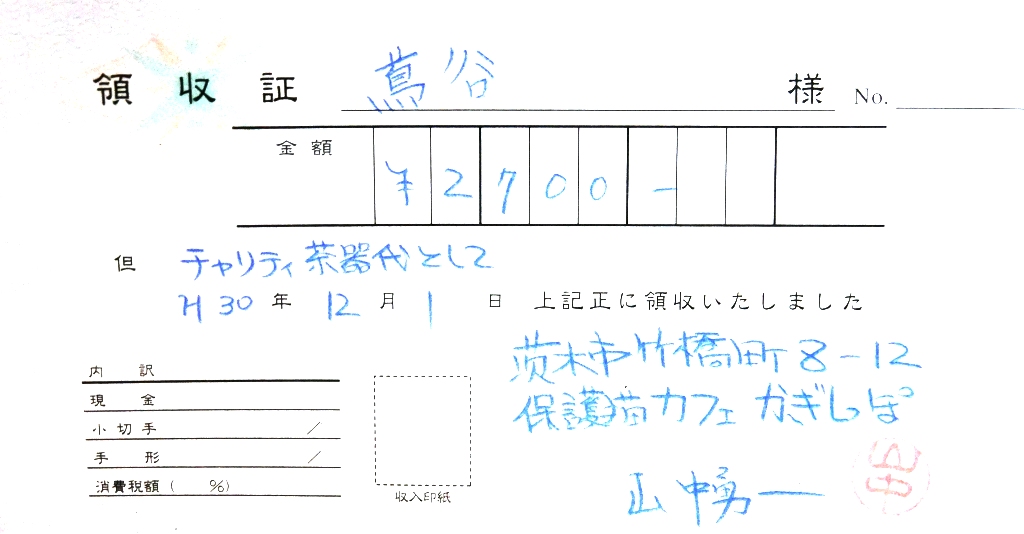 領収証 蔦谷 様 No.
金額 ¥2700-
但 チャリティ茶器代として
H30年 12月 1日 上記正に領収いたしました
茨木市竹橋町8-12
保護猫カフェ かぎしっぽ
山中勇一
内訳
現金
小切手 /
手形 /
消費税額( %)
収入印紙